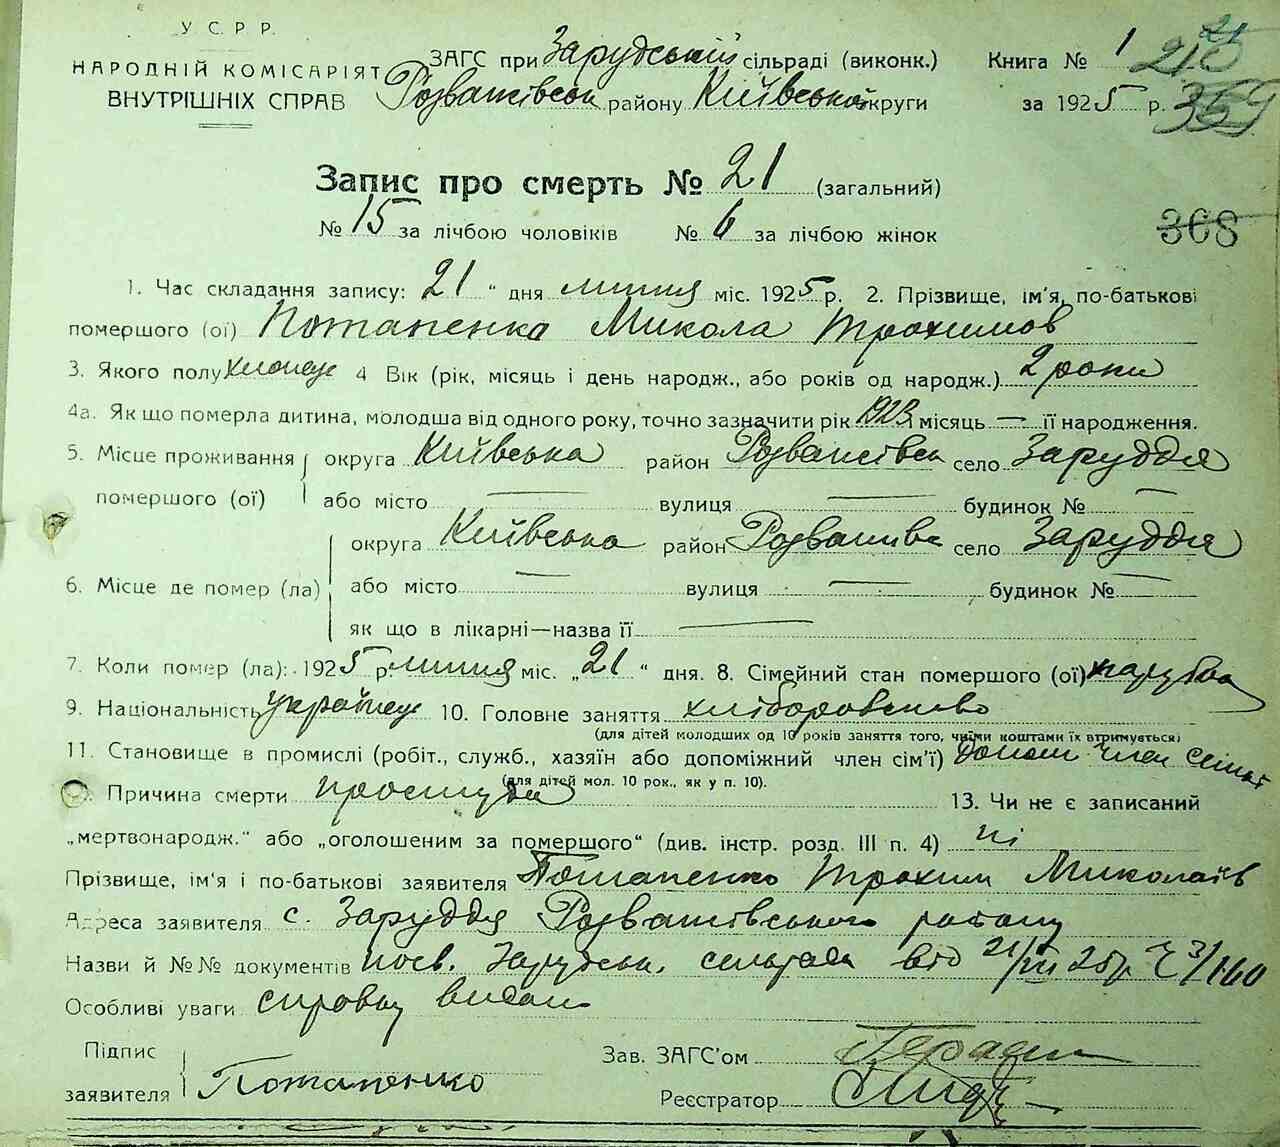 У С Р Р.
НАРОДНІЙ КОМІСАРІЯТ
ВНУТРІШНІХ СПРАВ
ЗАГС при Зарудській сільраді (виконк.)
Розважівськ району Київської округи
Книга № 1
за 1925 р.
215
21
359
368
Запис про смерть № 21 (загальний)
№ 15 за лічбою чоловіків № 6 за лічбою жінок
1. Час складання запису: 21 " дня липня міс. 1925 р. 2. Прізвище, ім'я, по-батькові
помершого (ої) Потапенка Микола Трохимов
3. Якого полу хлопець 4 Вік (рік, місяць і день народж., або років од народж.) 2 роки
4а. Як що померла дитина, молодша від одного року, точно зазначити рік 1923 і місяць — її народження.
5. Місце проживання округа Київська район Розважівськ село Заруддя
помершого (ої) або місто — вулиця — будинок № —
округа Київська район Розважівс село Заруддя
6. Місце де помер (ла) або місто — вулиця — будинок № —
як що в лікарні—назва її —
7. Коли помер (ла): 1925 р. липня міс. „21 " дня. 8. Сімейний стан помершого (ої) парубок
9. Національність українець 10. Головне заняття хліборобство
(для дітей молодших од 10 років заняття того, чиїми коштами їх втримується)
11. Становище в промислі (робіт., служб., хазяїн або допоміжний член сім'ї) допом член сем'ї
(для дітей мол. 10 рок., як у п. 10).
Причина смерти простуда 13. Чи не є записаний
„мертвонародж." або „оголошеним за помершого" (див. інстр. розд. III п. 4) ні
Прізвище, ім'я і по-батькові заявителя Потапенко Трохим Миколаїв
Адреса заявителя с. Заруддя Розважівського району
Назви й №№ документів посв. Зарудськ. сельради від 21/VII 25 р № 3/160
Особливі уваги справку видано
Підпис
заявителя Потапенко
Зав. ЗАГС'ом
Реєстратор